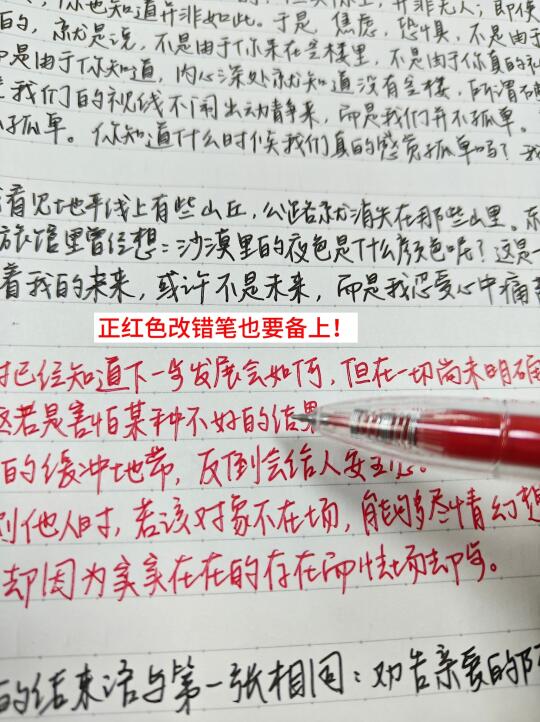 你也知道并非如此。于是 焦虑，恐惧，不是由于
的，就是说，不是由于你来在金楼里，不是由于你真的
是由于你知道，内心深处就知道没有金楼，所谓
我们的视线不闹出动静来，而是我们并不孤单。
孤单。你知道什么时候我们真的感觉孤单吗？我
看见地平线上有些山丘，公路就消失在那些山里。东
旅馆里曾经想：沙漠里的夜色是什么颜色呢？这是一
着我的未来，或许不是未来，而是我忍受心中痛苦
正红色改错笔也要备上！
已经知道下一步发展会如何，但在一切尚未明确
这若是害怕某种不好的结果
的缓冲地带，反倒会给人安全感。
别他人时，若该对象不在场，能够尽情幻想
却因为实实在在的存在而怯场却步。
的结束语与第一张相同：劝告亲爱的阿